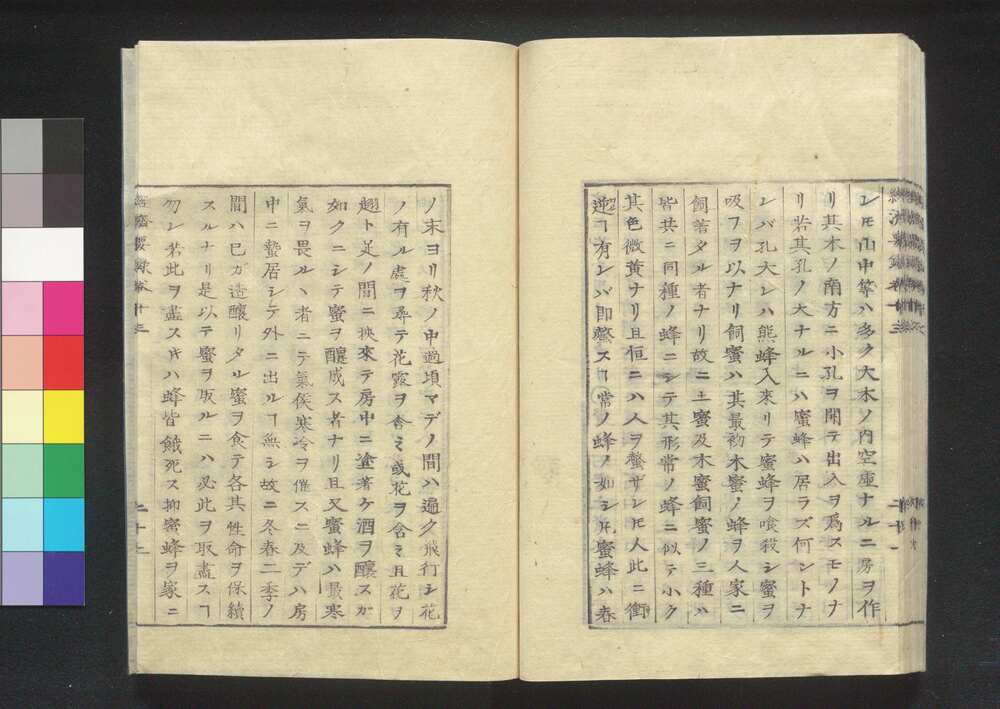 レモ山中等ハ多ク大木ノ内空虛ナルニ房ヲ作
リ其木ノ南方ニ小孔ヲ開テ出入ヲ爲スモノナ
リ若其孔ノ大ナルニハ蜜蜂ハ居ラズ何ントナ
レバ孔大レハ熊蜂入來リテ蜜蜂ヲ喰殺シ蜜ヲ
吸フヲ以ナリ飼蜜ハ其最初木蜜ノ蜂ヲ人家ニ
飼著タル者ナリ故ニ土蜜及木蜜飼蜜ノ三種ハ
皆共ニ同種ノ蜂ニシテ其形常ノ蜂ニ似テ小ク
其色微黄ナリ且恒ニハ人ヲ螫サレ𪜈人此ニ衝
逆ヿ有レバ即螫スヿ常ノ蜂ノ如シ𪜈蜜蜂ハ春
ノ末ヨリ秋ノ中過頃マデノ間ハ遍ク飛行シ花
ノ有ル處ヲ尋テ花露ヲ含ミ或花ヲ含ミ且花ヲ
翅ト足ノ間ニ挾來テ房中ニ塗著ケ酒ヲ釀スガ
如クニシテ蜜ヲ釀成ス者ナリ且又蜜蜂ハ最寒
氣ヲ畏ルヽ者ニテ氣候寒冷ヲ催スニ及デハ房
中ニ蟄居シテ外ニ出ルヿ無シ故ニ冬春二季ノ
間ハ已ガ造釀リタル蜜ヲ食テ各其性命ヲ保續
スルナリ是以テ蜜ヲ取ルニハ必此ヲ取盡スヿ
勿レ若此ヲ盡ス𪜈ハ蜂皆餓死ス抑蜜蜂ヲ家ニ